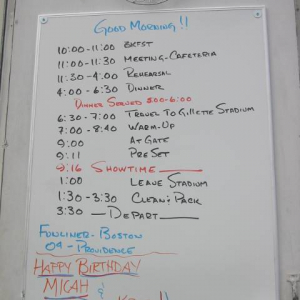 Good Morning!!
10:00-11:00 BKFST
11:00-11:30 Meeting-Cafeteria
11:30-4:00 Rehearsal
4:00-6:30 Dinner
Dinner Served 5:00-6:00
6:30-7:00 Travel To Gillette Stadium
7:00-8:40 Warm-Up
9:00 At Gate
9:11 PreSet
9:16 Showtime
1:00 Leave Stadium
1:30-3:30 Clean & Pack
3:30 — Depart —
Funliner-Boston
04-Providence
Happy Birthday
Micah
&